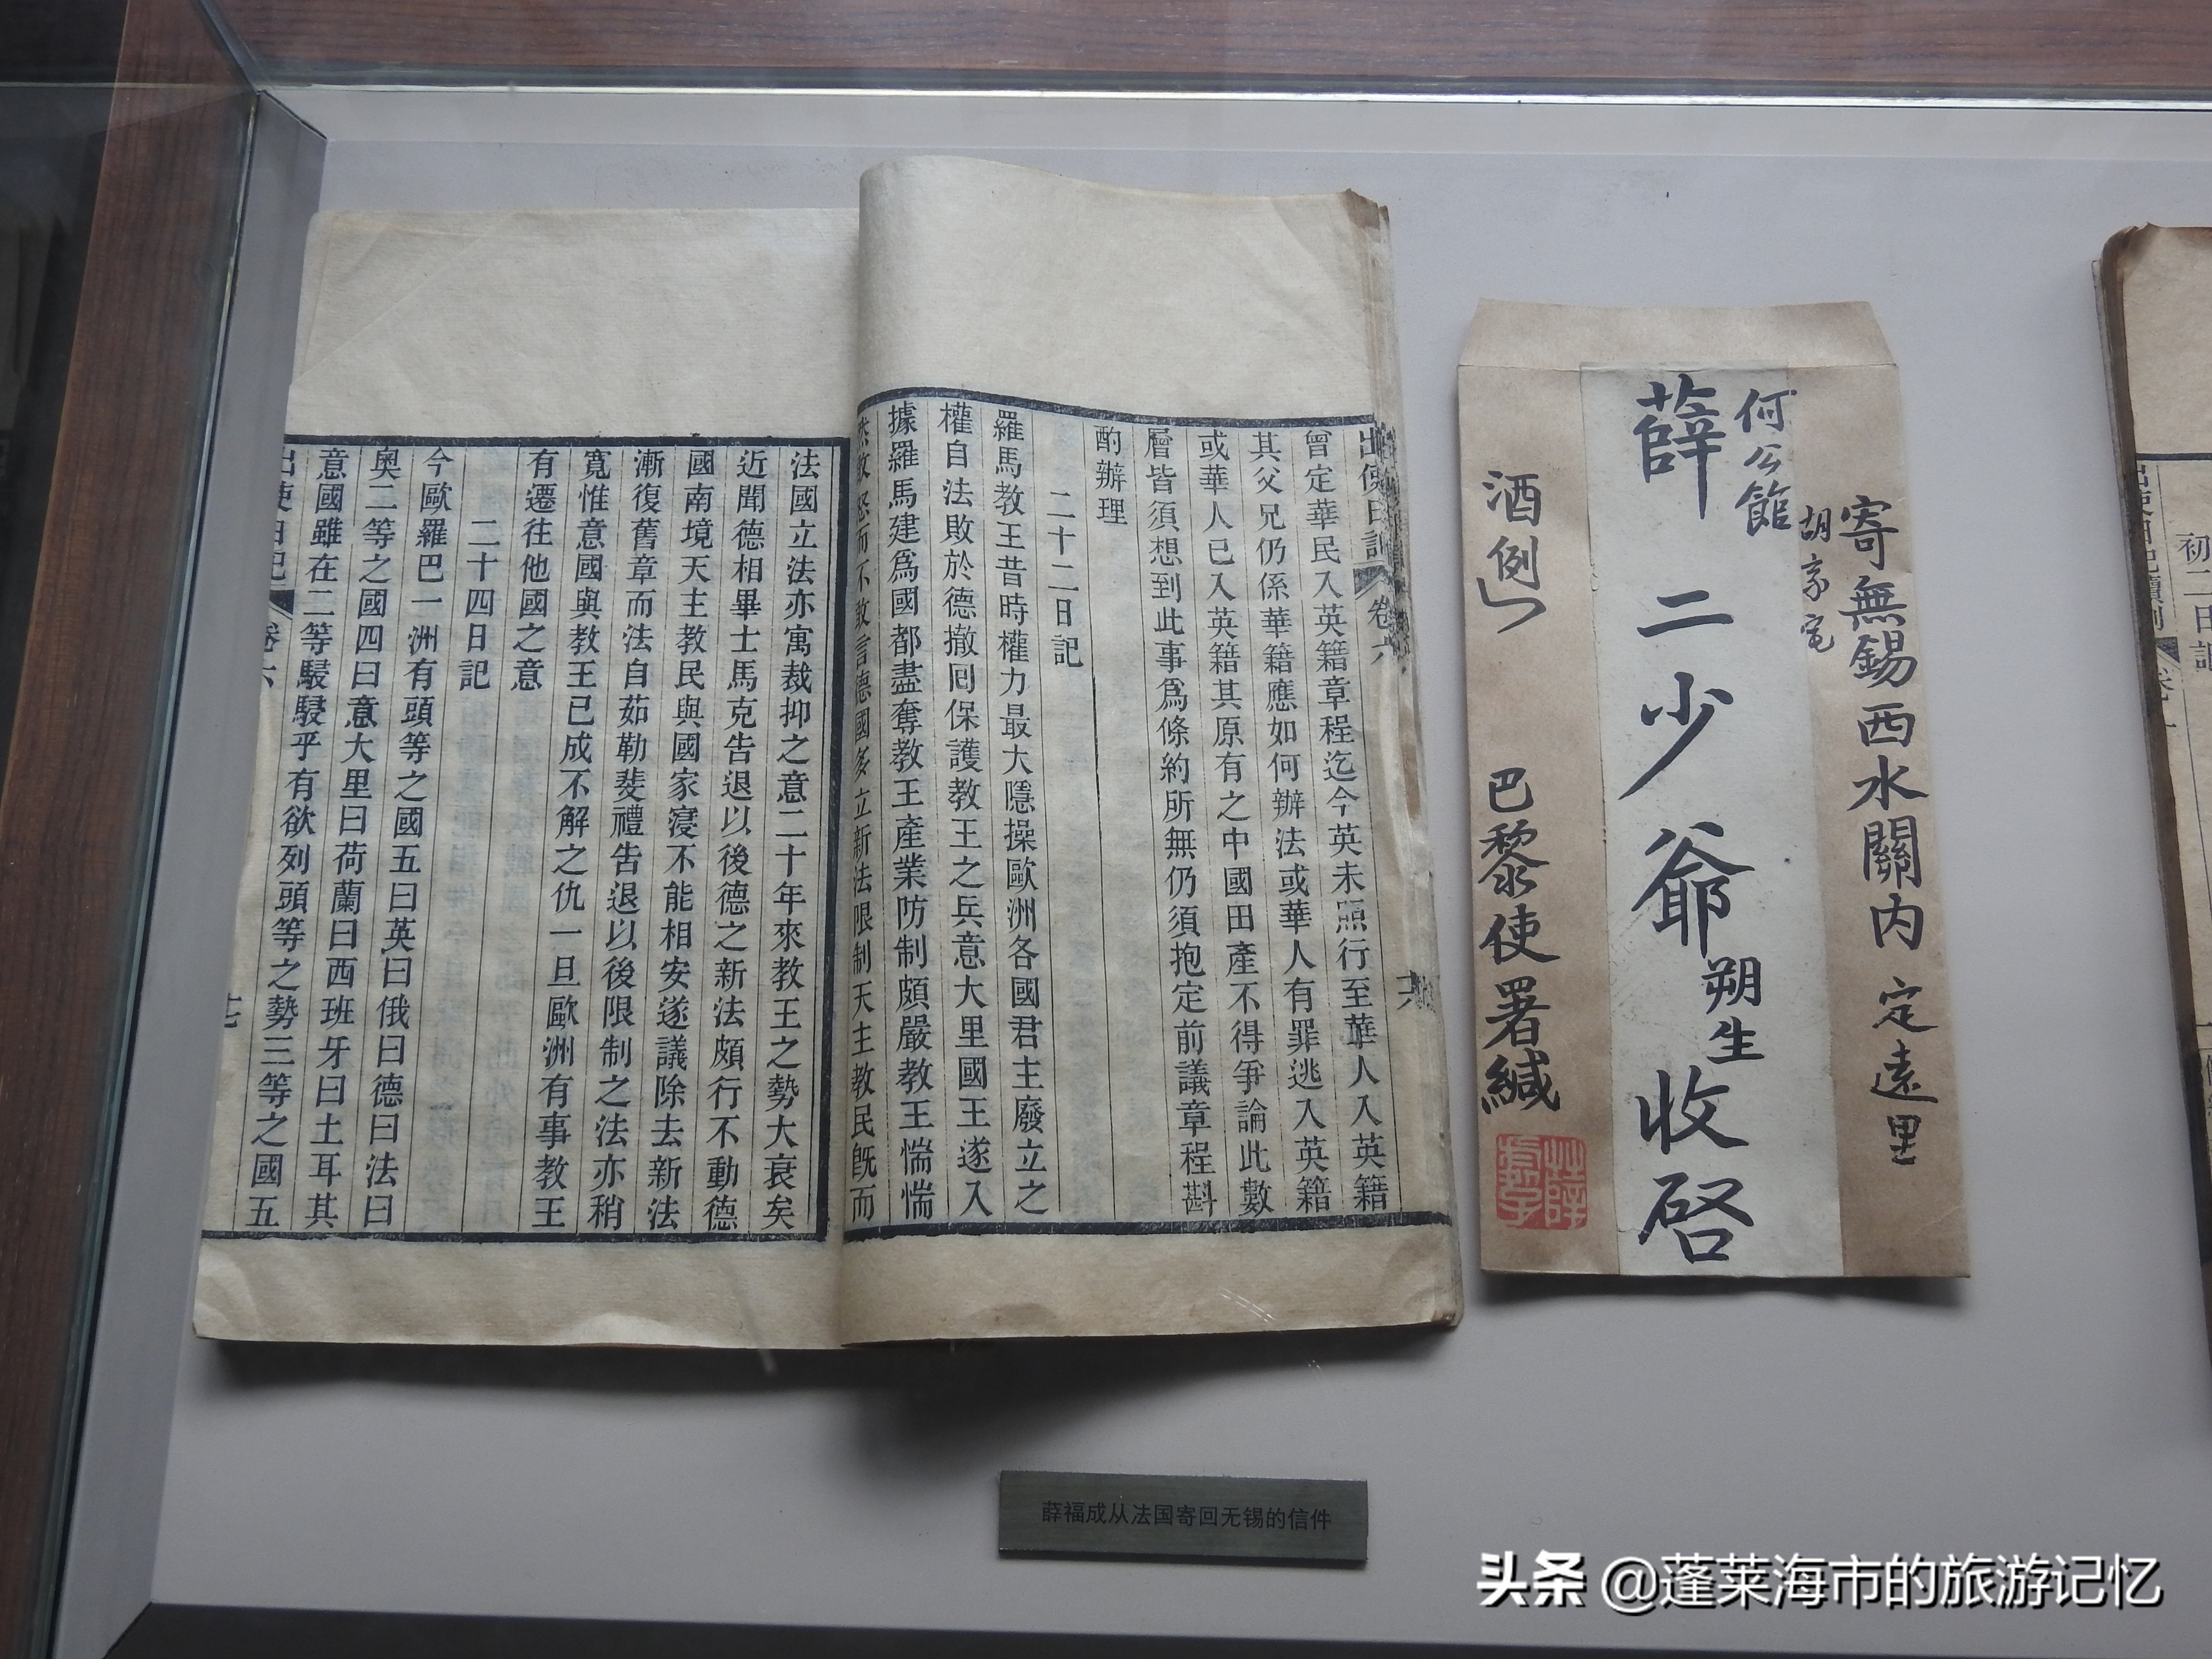 曾定華民入英籍章程迄今英未照行至華人入英籍
其父兄仍係華籍應如何辦法或華人有罪逃入英籍
或華人已入英籍其原有之中國田產不得爭論此數
層皆須想到此事爲條約所無仍須抱定前議章程斟
酌辦理
二十二日記
羅馬教王昔時權力最大隱操歐洲各國君主廢立之
權自法敗於德撤回保護教王之兵意大里國王遂入
據羅馬建爲國都盡奪教王產業防制頗嚴教王惴惴
而不敢言德國多立新法限制天主教民旣而
法國立法亦寓裁抑之意二十年來教王之勢大衰矣
近聞德相畢士馬克告退以後德之新法頗行不動德
國南境天主教民與國家寖不能相安遂議除去新法
漸復舊章而法自茹勒斐禮告退以後限制之法亦稍
寬惟意國與教王已成不解之仇一旦歐洲有事教王
有遷往他國之意
二十四日記
今歐羅巴一洲有頭等之國五曰英曰俄曰德曰法曰
奧二等之國四曰意大里曰荷蘭曰西班牙曰土耳其
意國雖在二等駸駸乎有欲列頭等之勢三等之國五
出使日記 卷六
寄無錫西水關内定遠里
何公館
薛二少爺朔生收啓
酒例
巴黎使署緘
薛福成从法国寄回无锡的信件
初二日記
头条 @蓬莱海市的旅游记忆